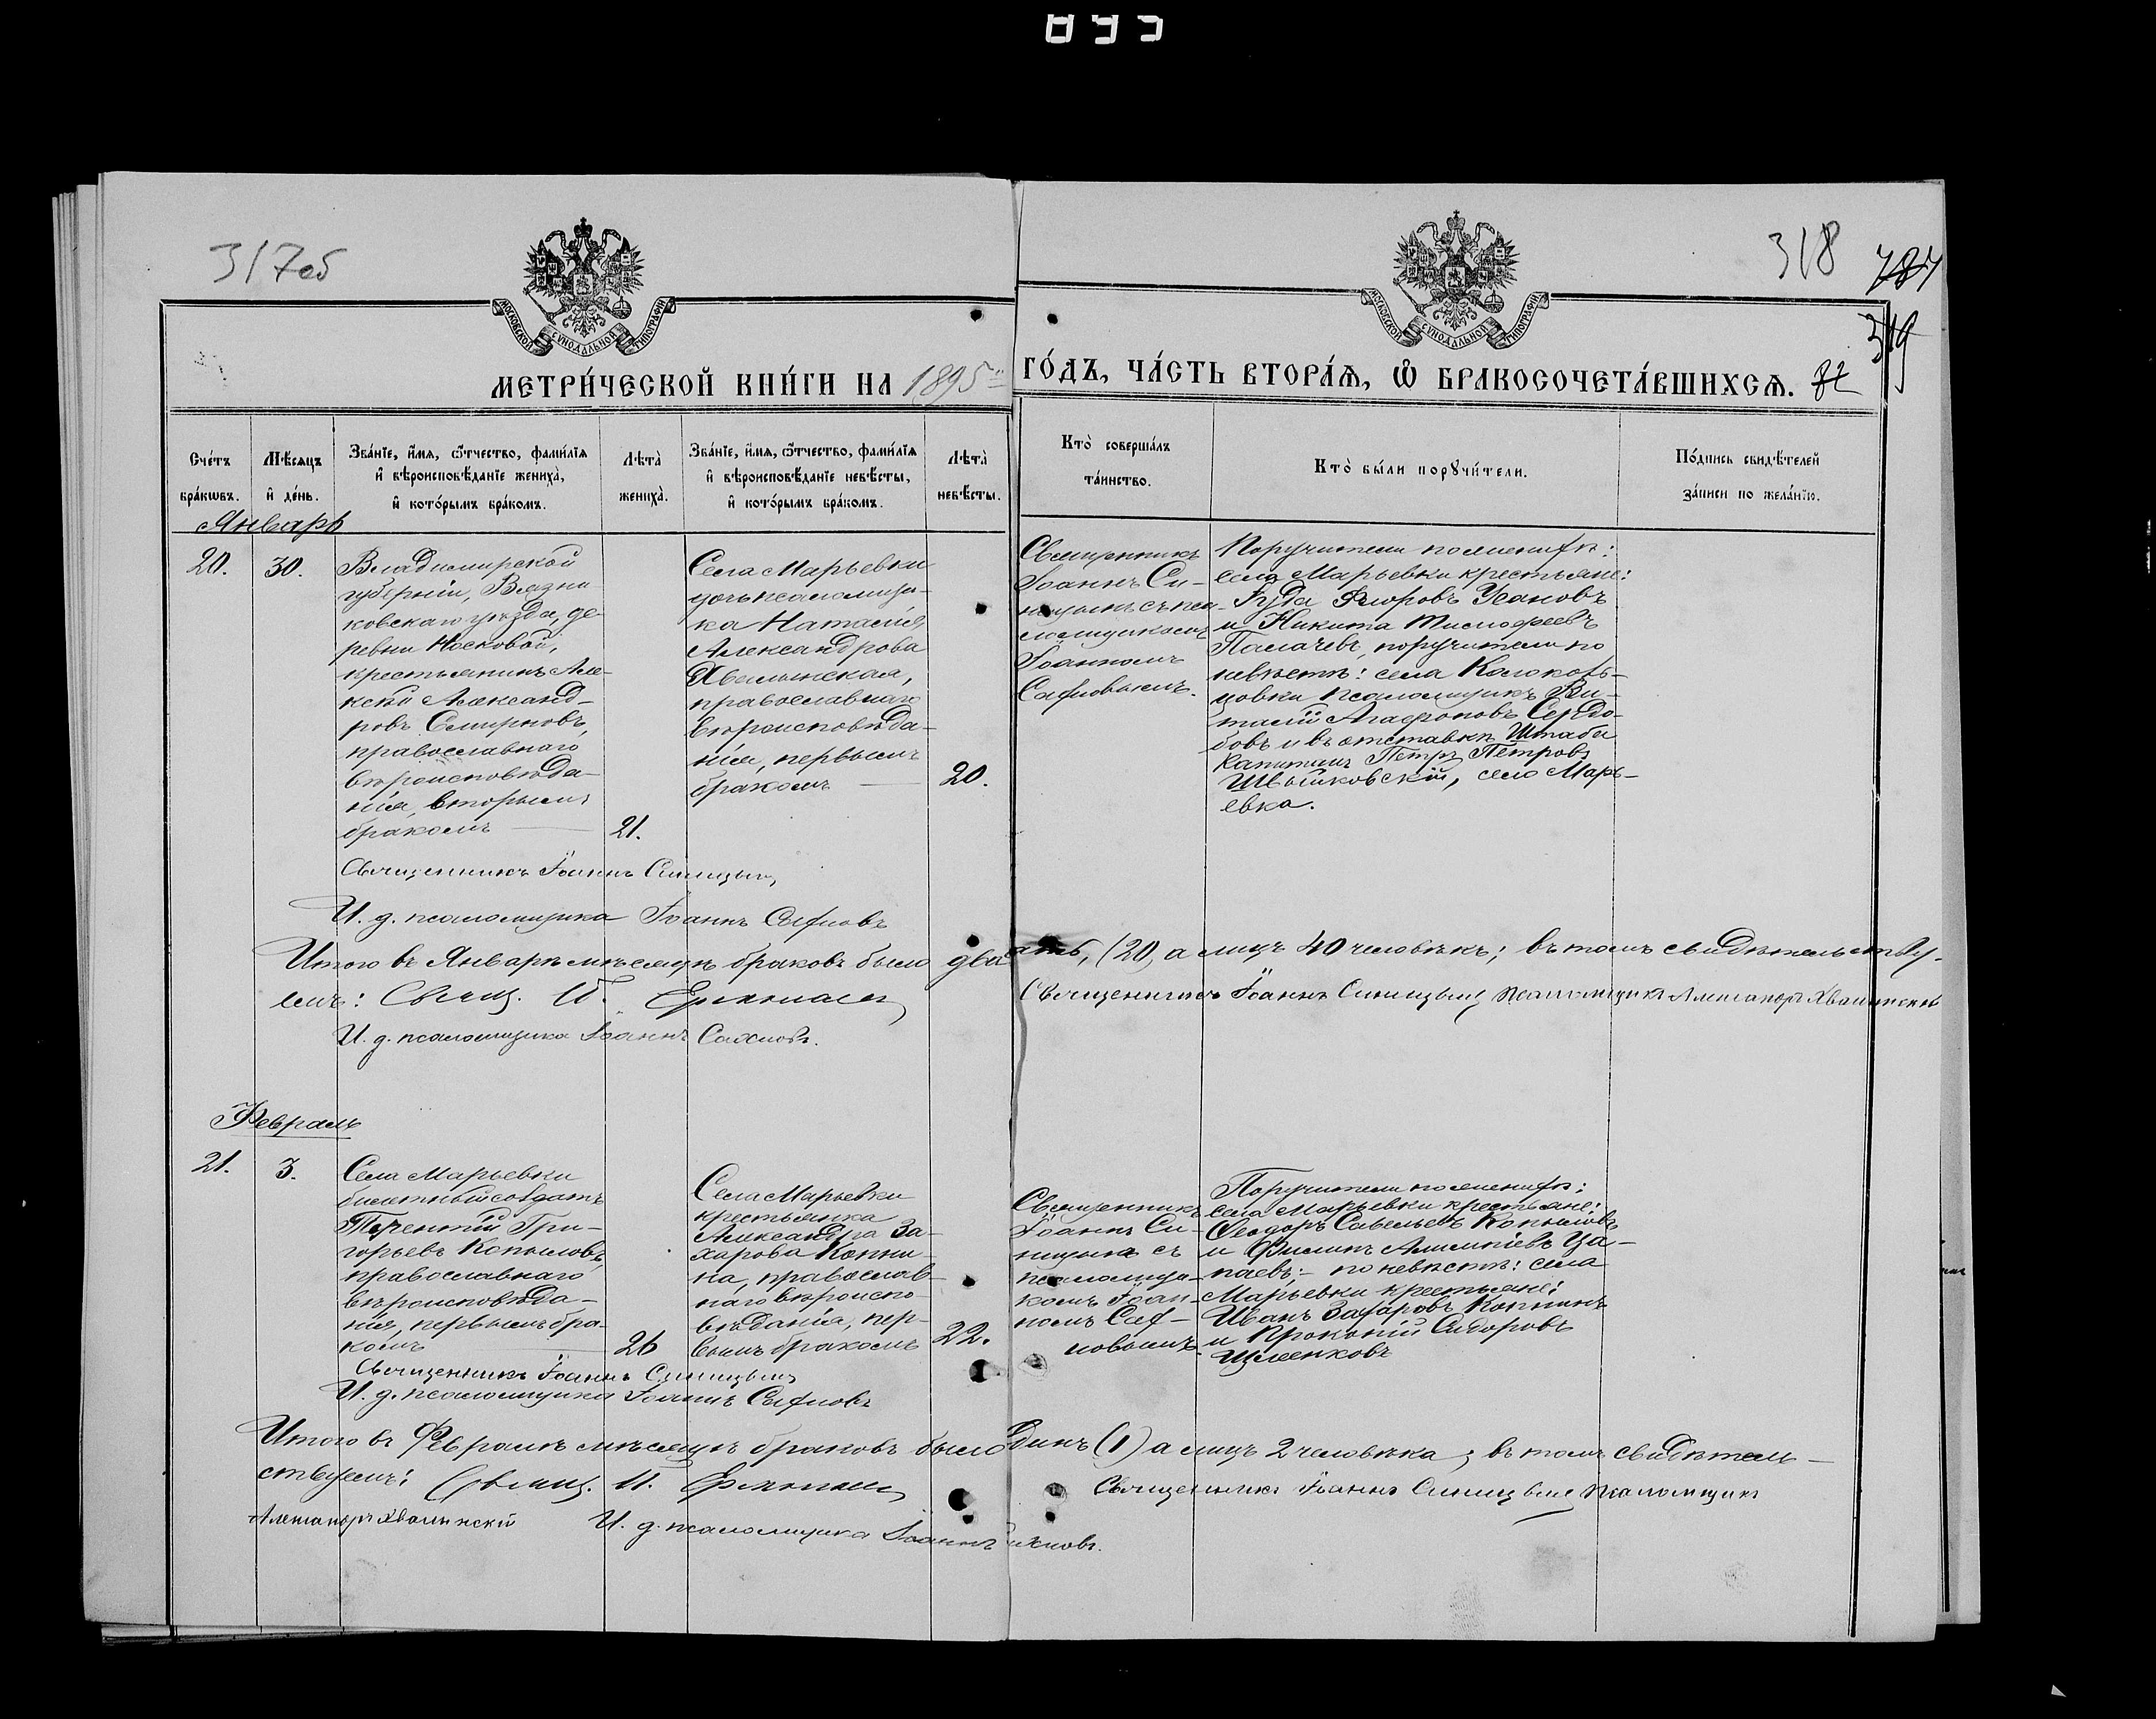 895
317об
318
787
319
МОСКОВСКОЙ СУНОДАЛЬНОЙ ТИПОГРАФІИ
МОСКОВСКОЙ СУНОДАЛЬНОЙ ТИПОГРАФІИ
МЕТРИ́ЧЕСКОЙ КНИ́ГИ НА 1895 ГО́ДЪ, ЧА́СТЬ ВТОРА́Ѧ, Ѽ БРАКОСОЧЕТА́ВШИХСѦ.
Сче́тъ
бра́кѡвъ.
Мѣ́сѧцъ
и҆ де́нь.
Зва́нїе, и҆́мѧ, ѻ҆́тчество, фами́лїѧ
и҆ вѣроисповѣ́данїе жениха̀,
и҆ кото́рымъ бра́комъ.
Лѣта̀
жениха̀.
Зва́нїе, и҆́мѧ, ѻ҆́тчество, фами́лїѧ
и҆ вѣроисповѣ́данїе невѣ́сты,
и҆ кото́рымъ бра́комъ.
Лѣта̀
невѣ́сты.
Кто̀ соверша́лъ
та́инство.
Кто̀ бы́ли порꙋчи́тели.
По́дпись свидѣ́телей
за́писи по жела́нїю.
Январь
20.
30.
Владимирской
губерніи, Вязни
ковскаго уѣзда, де
ревни Носковой,
крестьянинъ Але-
ксѣй Александ-
ровъ Смирновъ,
православнаго
вѣроисповѣда-
нія, вторымъ
бракомъ
21.
Села Марьевки
дочь псаломщи-
ка Наталія
Александрова
Хвалынская,
православнаго
вѣроисповѣда-
нія, первымъ
бракомъ
20.
Священникъ
Іоаннъ Си-
ницынъ съ пса-
ломщикомъ
Іоанномъ
Сахновымъ.
Поручители по женихѣ:
села Марьевки крестьяне:
Іуда Усановъ
и Никита Тимофеевъ
Палачевъ, поручители по
невѣстѣ: села Колоколь-
цовки псаломщикъ Ви-
талій Агафоновъ Сердо-
бовъ и въ отставкѣ Штабсъ
Капитанъ Петръ Петровъ
Швыйковскій, село Марь-
евка.
Священникъ Іоаннъ Синицынъ
И. д. псаломщика Іоаннъ Сахновъ
Итого въ Январѣ мѣсяцѣ браковъ было двадцать, (20) а лицъ 40 человѣкъ; въ томъ свидѣтельству-
емъ: Священ. И.
Священникъ Іоаннъ Синицынъ Псаломщикъ Александръ Хвалынскій
И. д. псаломщика Іоаннъ Сахновъ.
Февраль
21.
3.
Села Марьевки
билетный солдатъ
Терентій Гри-
горьевъ Копыловъ,
православнаго
вѣроисповѣда-
нія, первымъ бра-
комъ
26
Села Марьевки
крестьянка
Александра За-
харова Коппи-
на, православ-
наго вѣроиспо-
вѣданія, пер-
вымъ бракомъ
22.
Священникъ
Іоаннъ Си-
ницынъ съ
псаломщи-
комъ Іоан-
номъ Сах-
новымъ.
Поручители по женихѣ:
села Марьевки крестьяне:
Ѳеодоръ Савельевъ Копыловъ
и Филипъ Ца-
паевъ; – по невѣстѣ: села
Марьевки крестьяне:
Иванъ Захаровъ Коппинъ
и Прокопій Сидоровъ
Щменковъ
Священникъ Іоаннъ Синицынъ
И. д. псаломщика Іоаннъ Сахновъ
Итого въ Февралѣ мѣсяцѣ браковъ было одинъ (1) а лицъ 2 человѣка; въ томъ свидѣтель-
ствуемъ: Священ. И.
Священникъ Іоаннъ Синицынъ Псаломщикъ
Александръ Хвалынскій И. д. псаломщика Іоаннъ Сахновъ.